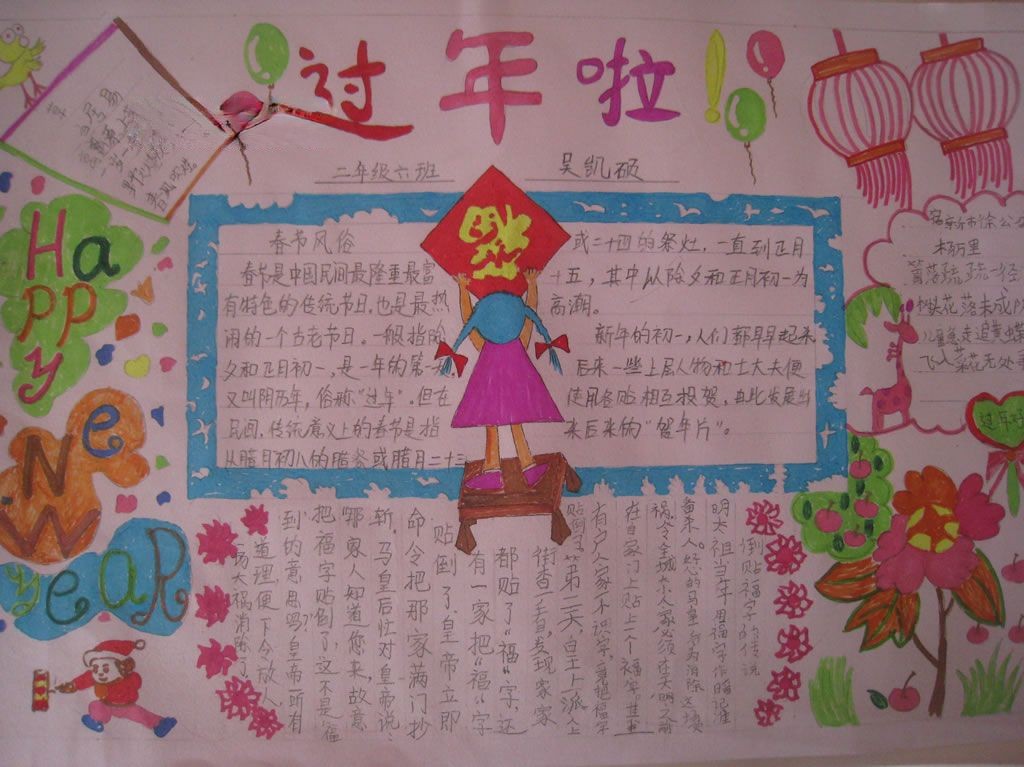 过年啦!
二年级六班 吴凯硕
Happy
New
Year
春节风俗
春节是中国民间最隆重最富
有特色的传统节日,也是最热
闹的一个古老节日。一般指除
夕和正月初一,是一年的第一
又叫阴历年,俗称"过年"。但在
民间,传统意义上的春节是指
从腊月初八的腊祭或腊月二十三
或二十四的祭灶,一直到正月
十五,其中以除夕和正月初一为
高潮。
新年的初一,人们都早早起来
后来一些上层人物和士大夫便
使用各贴相互投贺,由此发展出
来后来的"贺年片"。
杨万里
过年
倒贴福字的传说
明太祖当年用福字作暗记准
备杀人。好心的马皇后为消除这场
祸,令全城大小人家必须在天明之前
在自家门上贴上一个福字。其中
有户人家不识字,竟把福字
贴倒了。第二天,皇上派人上
街查看,发现家家
都贴了"福"字,还
有一家把"福"字
贴倒了。皇帝立即
命令把那家满门抄
斩。马皇后忙对皇帝说:
"哪家人知道您来,故意
把福字贴倒了,这不是"福
到"的意思吗?"皇帝一听有
道理,便下令放人,
一场大祸消除了。